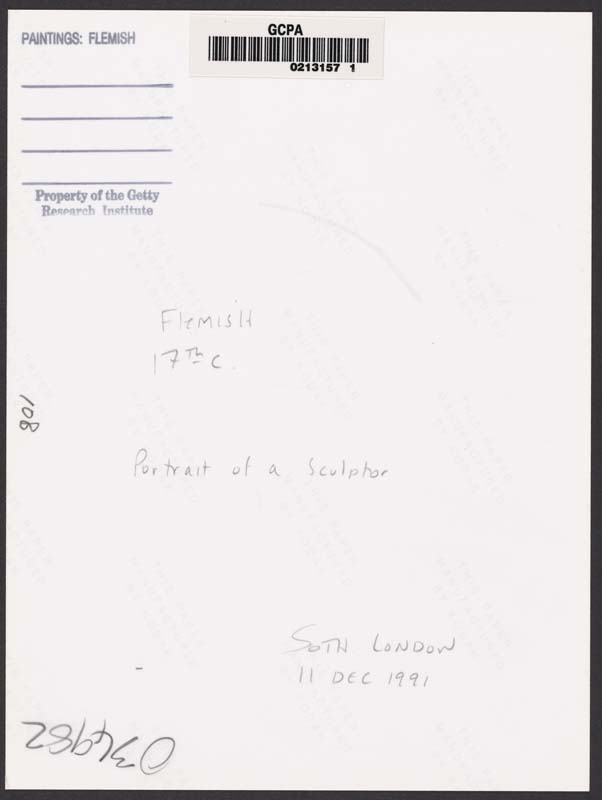 PAINTINGS: FLEMISH
GCPA
0213157 1
Property of the Getty
Research Institute
Flemish
17Th C.
108
Portrait of a Sculptor
SOTH LONDON
11 DEC 1991